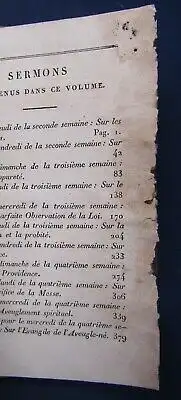 SERMONS
ENUS DANS CE VOLUME.
eudi de la seconde semaine : Sur les
s. Pag. 1.
endredi de la seconde semaine : Sur
42
dimanche de la troisième semaine :
pureté. 83
di de la troisième semaine : Sur le
138
ercredi de la troisième semaine :
arfaite Observation de la Loi. 170
udi de la troisième semaine : Sur la
n et la probité. 204
endredi de la troisième semaine :
ce. 233
imanche de la quatrième semaine :
Providence. 274
undi de la quatrième semaine : Sur
rifice de la Messe. 306
mercredi de la quatrième semaine :
Aveuglement spirituel. 339
pour le mercredi de la quatrième se-
Sur l'Evangile de l'Aveugle-né. 379